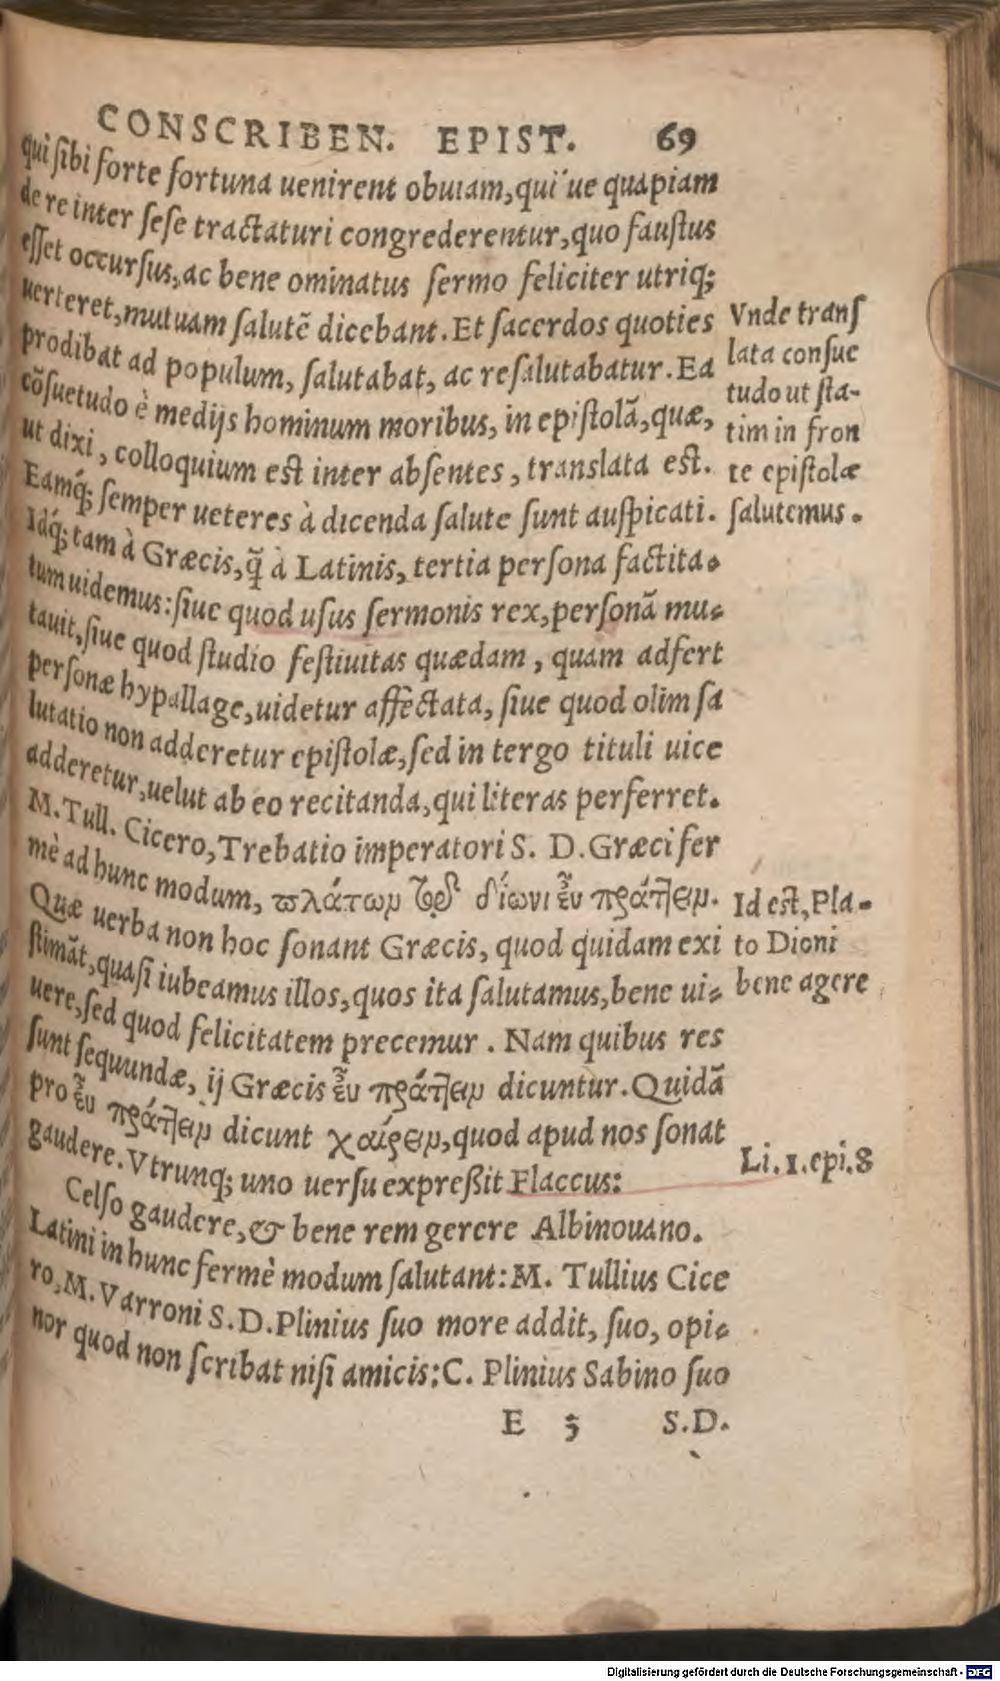 CONSCRIBEN. EPIST. 69
qui ſibi forte fortuna uenirent obuiam,qui'ue quapiam
de re inter ſeſe tractaturi congrederentur,quo fauſtus
eſſet occurſus,ac bene ominatus ſermo feliciter utriq;
uerteret,mutuam ſalutē dicebant.Et ſacerdos quoties
prodibat ad populum, ſalutabat, ac reſalutabatur.Ea
cōſuetudo è medijs hominum moribus, in epiſtolā,quæ,
ut dixi, colloquium est inter abſentes, translata est.
Eamq́; ſemper ueteres à dicenda ſalute ſunt auſpicati.
Idq́; tam à Græcis,q̃ à Latinis, tertia perſona factita-
tum uidemus:ſiue quod uſus ſermonis rex,perſonā mu-
tauit,ſiue quod ſtudio feſtiuitas quædam, quam adfert
perſonæ hypallage,uidetur affectata, ſiue quod olim ſa
lutatio non adderetur epiſtolæ,ſed in tergo tituli uice
adderetur,uelut ab eo recitanda,qui literas perferret.
M.Tull. Cicero,Trebatio imperatori S. D.Græci fer
mè ad hunc modum, πλάτων τῷ δίωνι εὖ πράττειν.
Quæ uerba non hoc ſonant Græcis, quod quidam exi
ſtimāt,quaſi iubeamus illos,quos ita ſalutamus,bene ui-
uere,ſed quod felicitatem precemur. Nam quibus res
ſunt ſequundæ, ij Græcis εὖ πράττειν dicuntur.Quidā
pro εὖ πράττειν dicunt χαίρειν,quod apud nos ſonat
gaudere.Vtrunq; uno uerſu expreßit Flaccus:
Celſo gaudere,& bene rem gerere Albinouano.
Latini in hunc fermè modum ſalutant:M. Tullius Cice
ro,M.Varroni S.D.Plinius ſuo more addit, ſuo, opi-
nor quod non ſcribat niſi amicis:C. Plinius Sabino ſuo
E 3 S.D.
Vnde tranſ
lata conſue
tudo ut ſta-
tim in fron
te epiſtolæ
ſalutemus.
Id est, Pla-
to Dioni
bene agere
Li.1.epi.8
Digitalisierung gefördert durch die Deutsche Forschungsgemeinschaft - DFG